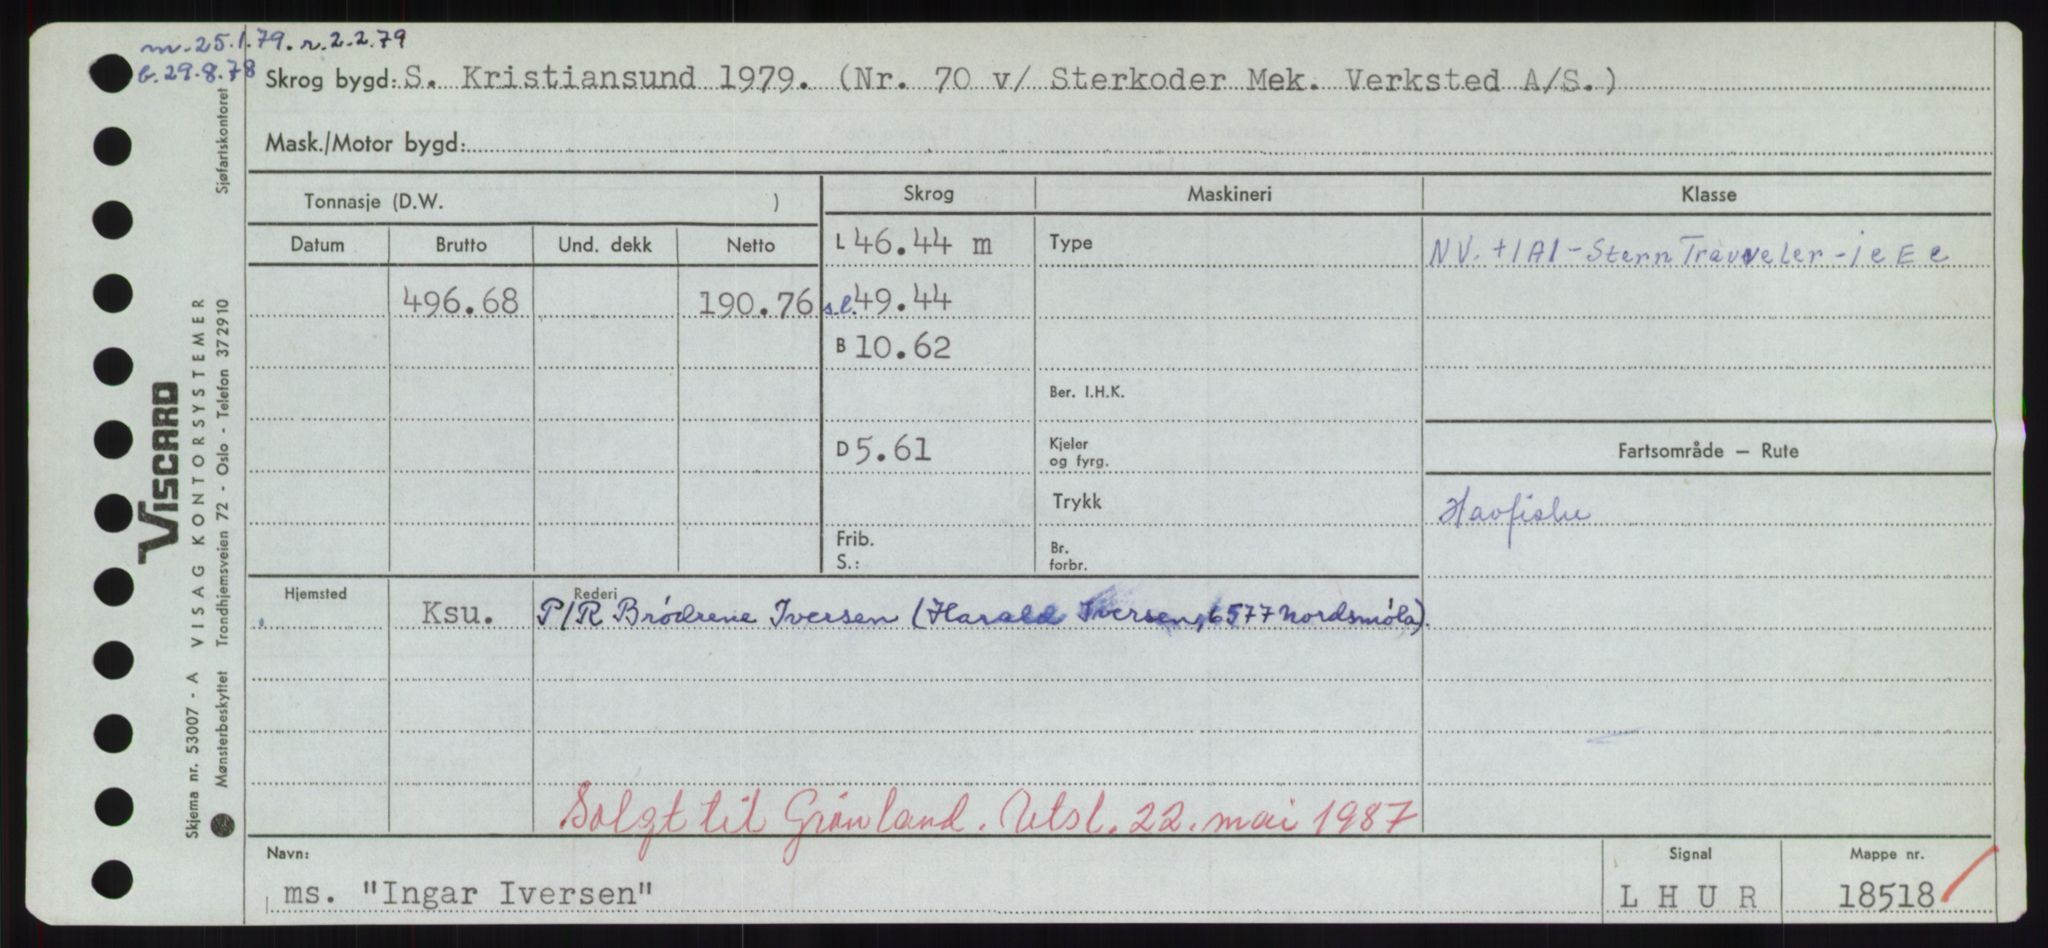 m. 25.1.79. r. 2.2.79
b. 29.8.78
Skrog bygd: S. Kristiansund 1979. (Nr. 70 v/ Sterkoder Mek. Verksted A/S.)
Mask./Motor bygd:
Tonnasje (D.W. )
Skrog
Maskineri
Klasse
Datum
Brutto
Und. dekk
Netto
L 46.44 m
Type
NV. +1A1 - Stern Travveler - ic E c
496.68
190.76
s.l. 49.44
B 10.62
Ber. I.H.K.
D 5.61
Kjeler
og fyrg.
Fartsområde — Rute
Trykk
Havfiske
Frib.
S.:
Br.
forbr.
Hjemsted
Ksu.
Rederi
P/R Brødrene Iversen (Harald Iversen, 6577 Nordsmøla).
Solgt til Grønland. Utsl. 22. mai 1987
Navn:
ms. "Ingar Iversen"
Signal
L H U R
Mappe nr.
18518
VISCARD
Skjema nr. 53007 - A VISAG KONTORSYSTEMER
Mønsterbeskyttet Trondhjemsveien 72 - Oslo - Telefon 372910 Sjøfartskontoret